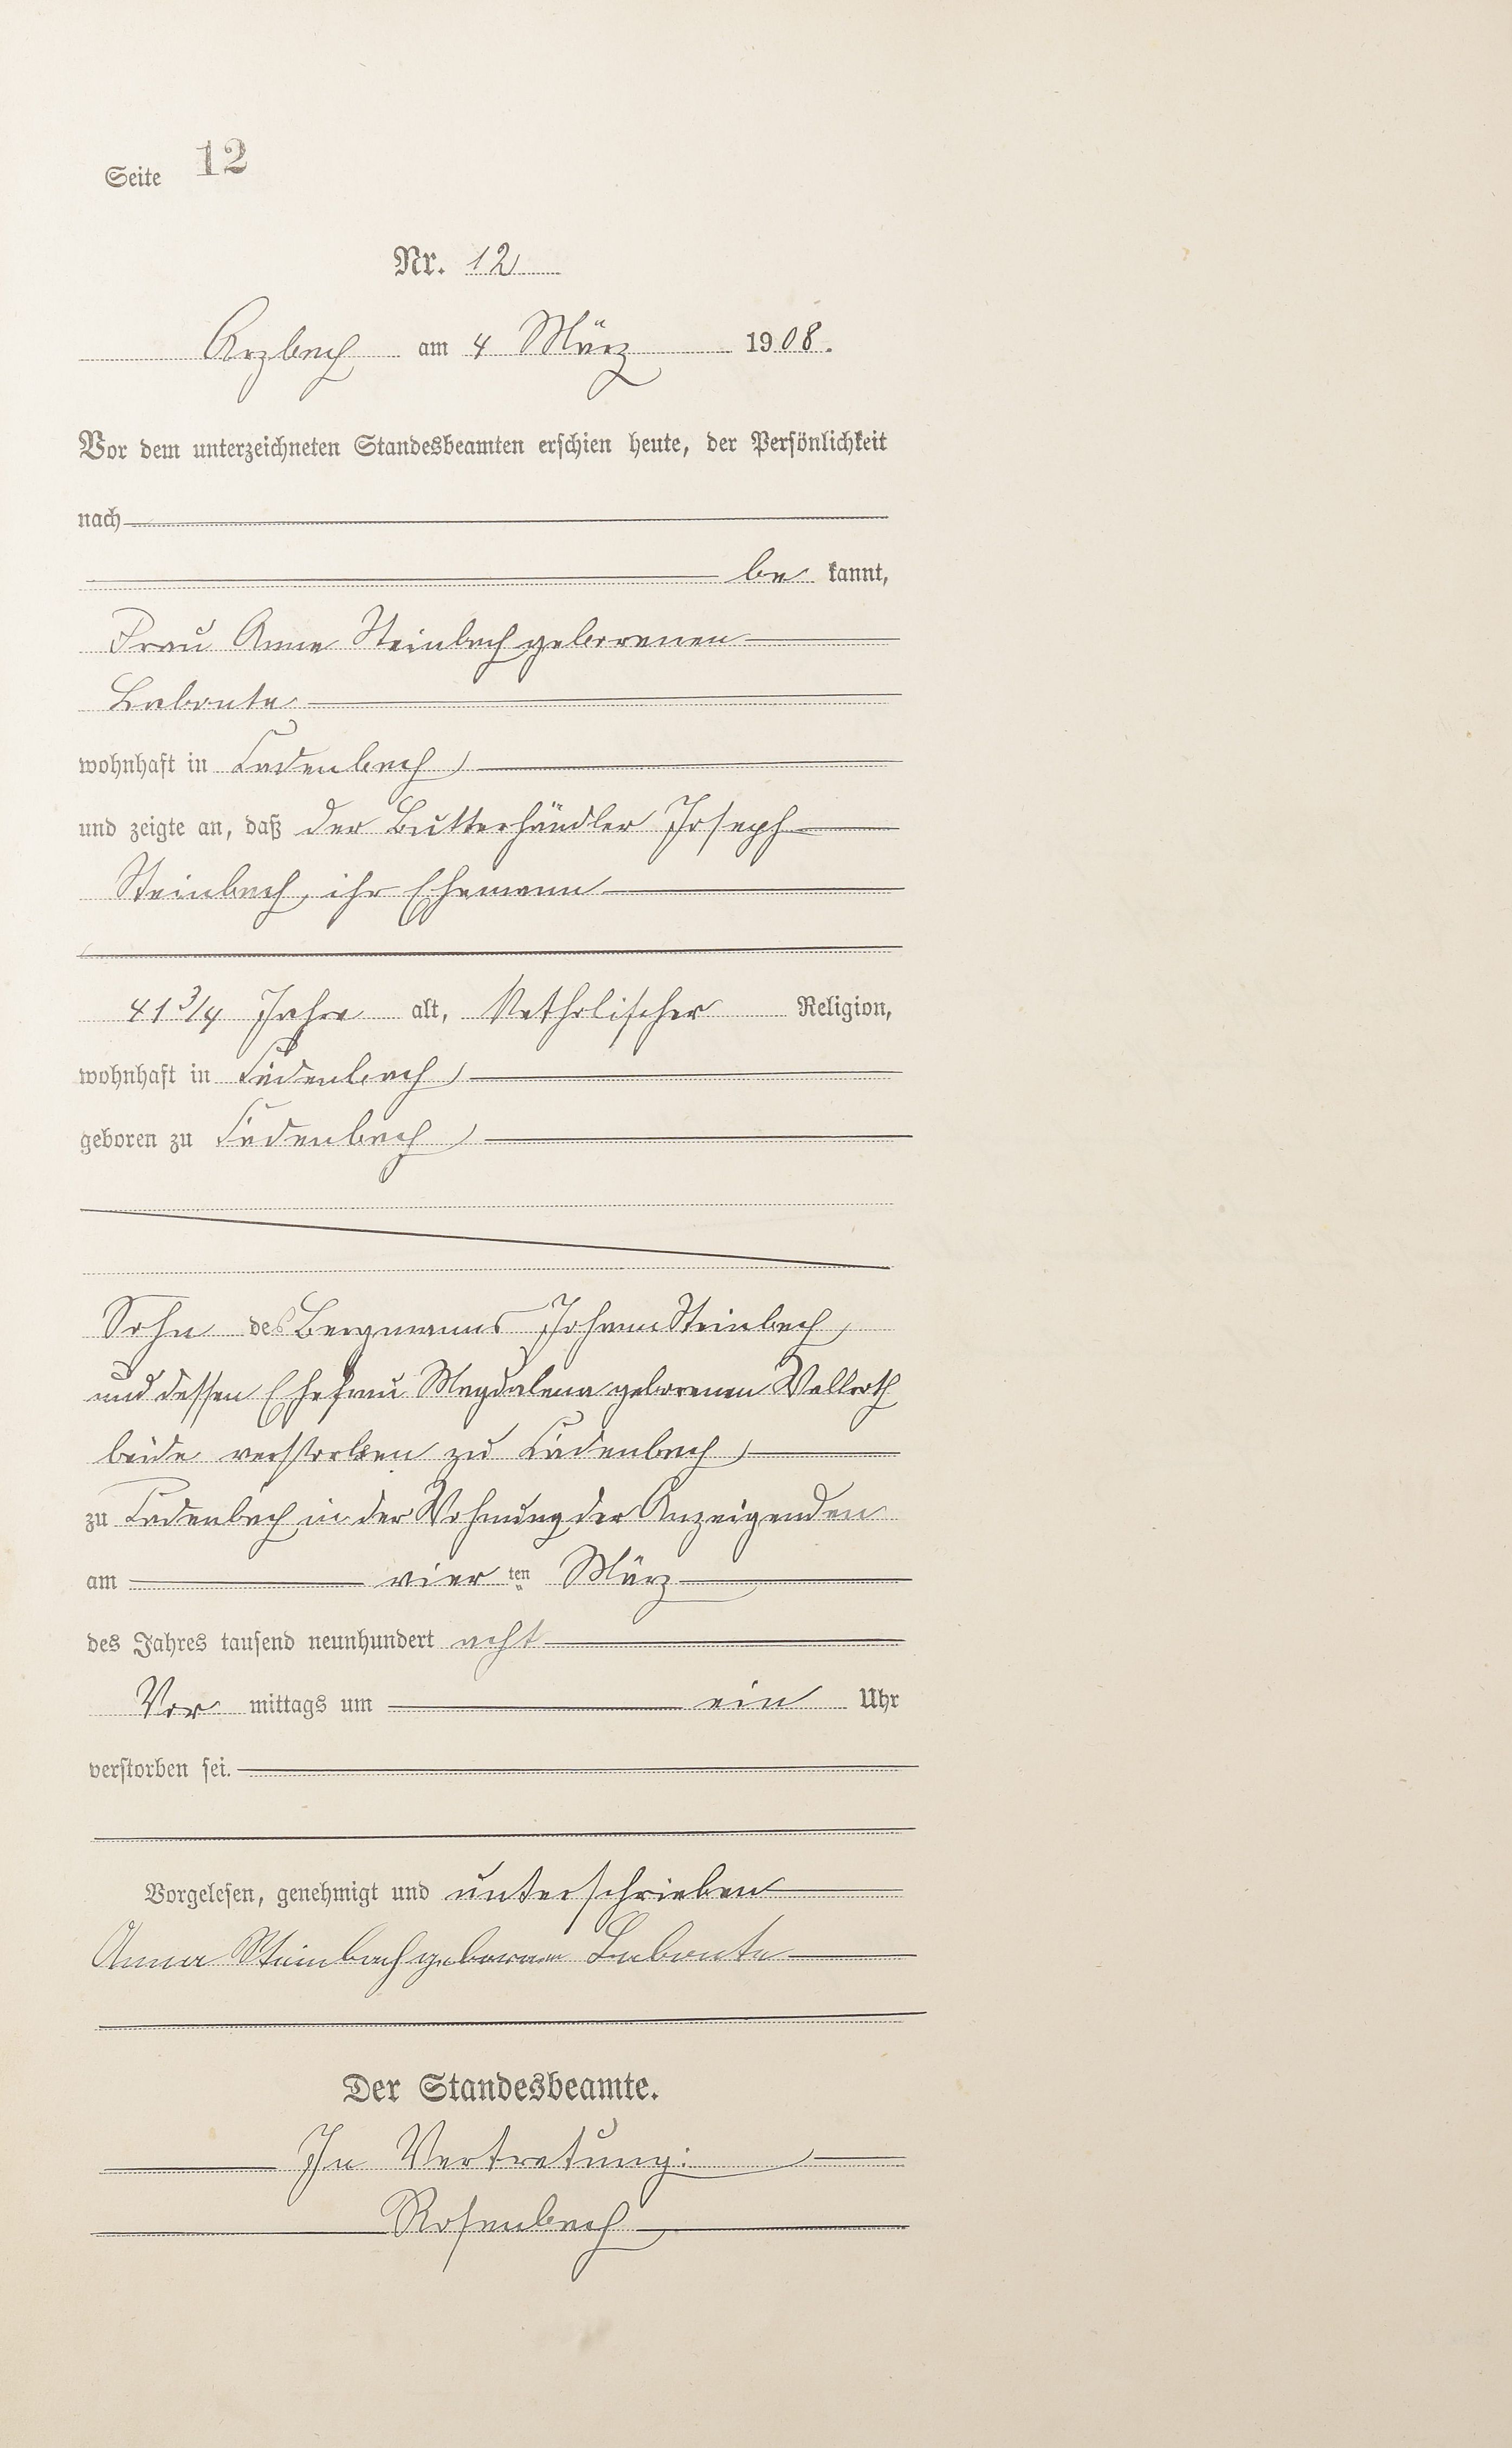 Seite 12
Nr. 12
Arzbach am 4 März 1908.
Vor dem unterzeichneten Standesbeamten erschien heute, der Persönlichkeit
nach
be kannt,
Frau Anna Steinbach geborenen
Labonte
wohnhaft in Cadenbach
und zeigte an, daß der Butterhändler Joseph
Steinbach, ihr Ehemann
41 3/4 Jahre alt, Katholischer Religion,
wohnhaft in Cadenbach
geboren zu Cadenbach
Sohn des Bergmanns Johann Steinbach
und dessen Ehefrau Magdalena geborenen Wallroth
beide verstorben zu Cadenbach
zu Cadenbach in der Wohnung der Anzeigenden
am vier ten März
des Jahres tausend neunhundert acht
Vor mittags um ein Uhr
verstorben sei.
Vorgelesen, genehmigt und unterschrieben
Anna Steinbach geborene Labonte
Der Standesbeamte.
In Vertretung:
Rosenbach